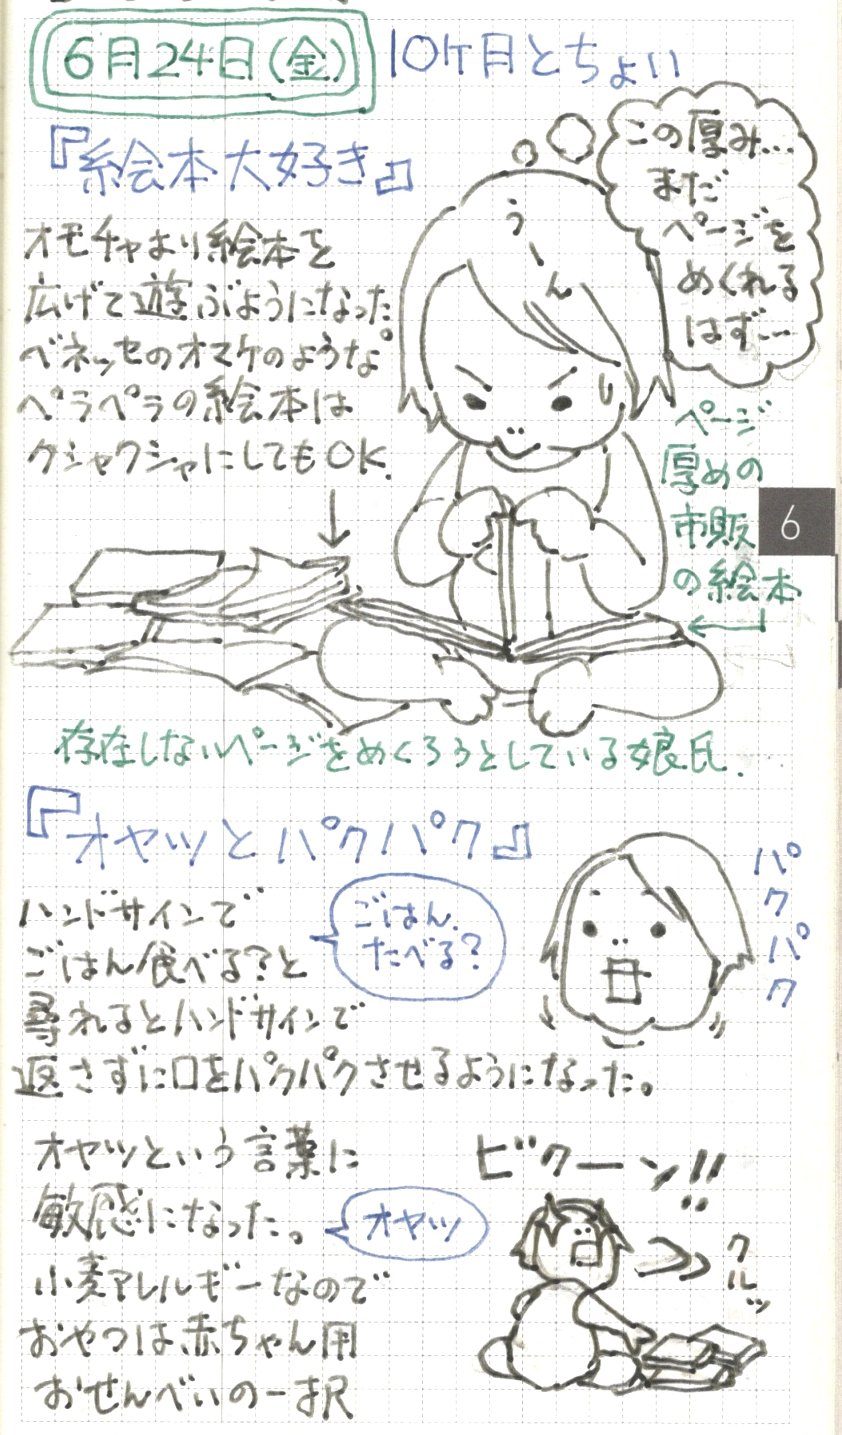 6月24日(金)
10ケ月とちょい
『絵本大好き』
オモチャより絵本を
広げて遊ぶようになった
ベネッセのオマケのような
ペラペラの絵本は
クシャクシャにしてもOK.
うーん
この厚み…
まだ
ページを
めくれる
はず…
ページ
厚めの
市販
の絵本
6
存在しないページをめくろうとしている娘氏.
『オヤツとパクパク』
ハンドサインで
ごはん食べる?と
尋ねるとハンドサインで
返さずに口をパクパクさせるようになった。
ごはん
たべる?
パクパク
オヤツという言葉に
敏感になった。
小麦アレルギーなので
おやつは赤ちゃん用
おせんべいの一択
オヤツ
ビクーン!!
クルッ